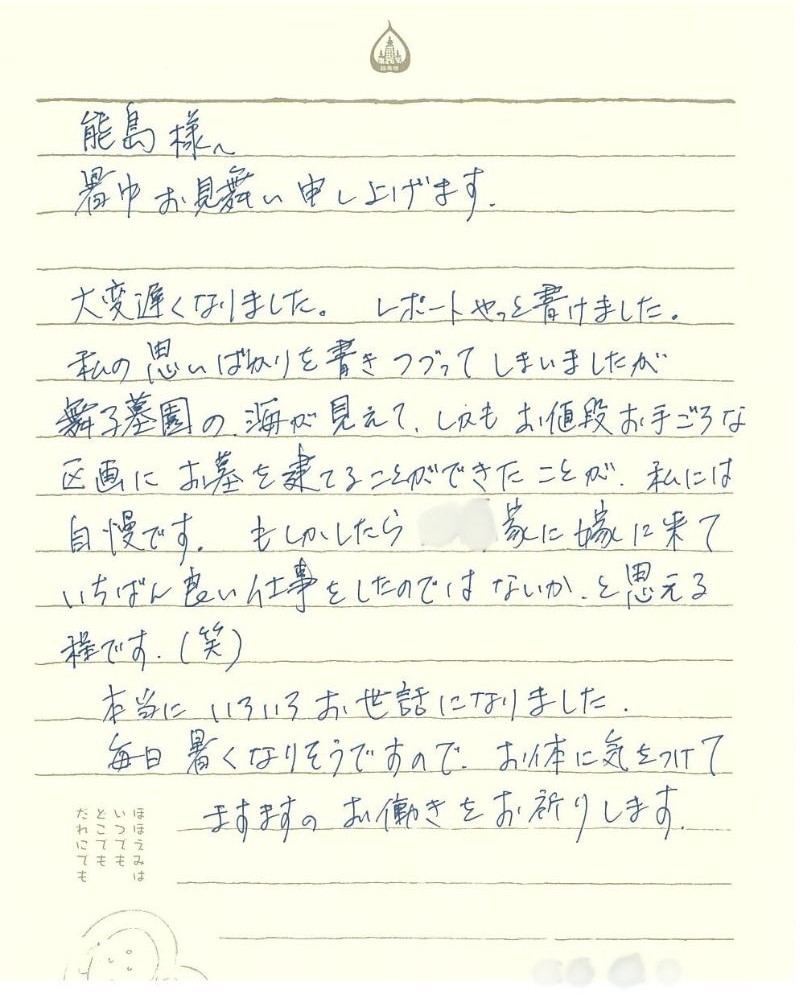 能島様へ
暑中お見舞い申し上げます.
大変遅くなりました。 レポートやっと書けました。
私の思いばかりを書きつづってしまいましたが
舞子墓園の、海が見えて、しかもお値段お手ごろな
区画にお墓を建てることができたことが、私には
自慢です。 もしかしたら 家に嫁に来て
いちばん良い仕事をしたのではないか、と思える
程です.(笑)
本当にいろいろお世話になりました.
毎日暑くなりそうですので、お体に気をつけて
ますますのお働きをお祈りします.
ほほえみは
いつでも
どこでも
だれにでも